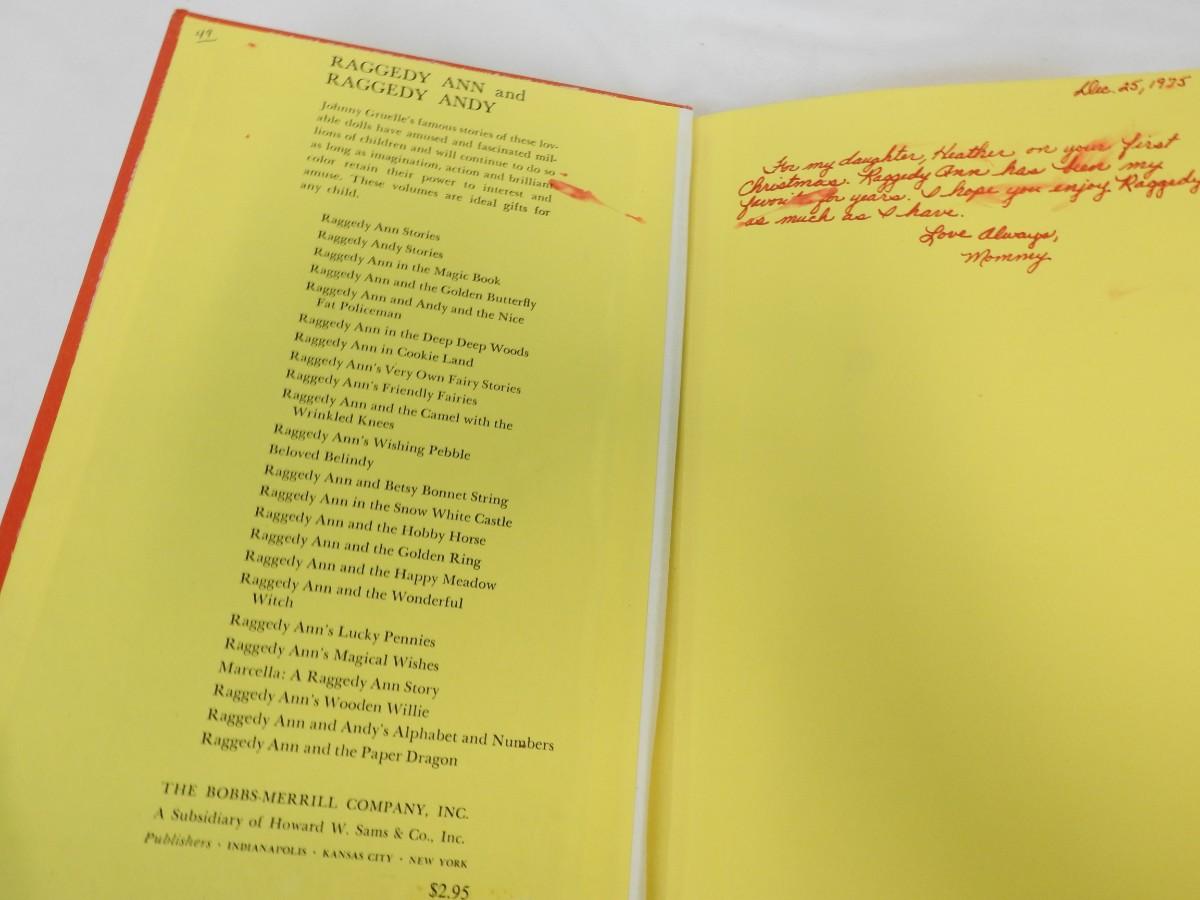 49
RAGGEDY ANN and
RAGGEDY ANDY
Johnny Gruelle's famous stories of these lov-
able dolls have amused and fascinated mil-
lions of children and will continue to do so
as long as imagination, action and brilliant
color retain their power to interest and
amuse. These volumes are ideal gifts for
any child.
Raggedy Ann Stories
Raggedy Andy Stories
Raggedy Ann in the Magic Book
Raggedy Ann and the Golden Butterfly
Raggedy Ann and Andy and the Nice
Fat Policeman
Raggedy Ann in the Deep Deep Woods
Raggedy Ann in Cookie Land
Raggedy Ann's Very Own Fairy Stories
Raggedy Ann's Friendly Fairies
Raggedy Ann and the Camel with the
Wrinkled Knees
Raggedy Ann's Wishing Pebble
Beloved Belindy
Raggedy Ann and Betsy Bonnet String
Raggedy Ann in the Snow White Castle
Raggedy Ann and the Hobby Horse
Raggedy Ann and the Golden Ring
Raggedy Ann and the Happy Meadow
Raggedy Ann and the Wonderful
Witch
Raggedy Ann's Lucky Pennies
Raggedy Ann's Magical Wishes
Marcella: A Raggedy Ann Story
Raggedy Ann's Wooden Willie
Raggedy Ann and Andy's Alphabet and Numbers
Raggedy Ann and the Paper Dragon
THE BOBBS-MERRILL COMPANY, INC.
A Subsidiary of Howard W. Sams & Co., Inc.
Publishers · INDIANAPOLIS · KANSAS CITY · NEW YORK
$2.95
Dec. 25, 1975
For my daughter, Heather on your first
Christmas. Raggedy Ann has been my
favorite for years. I hope you enjoy Raggedy
as much as I have.
Love Always,
Mommy